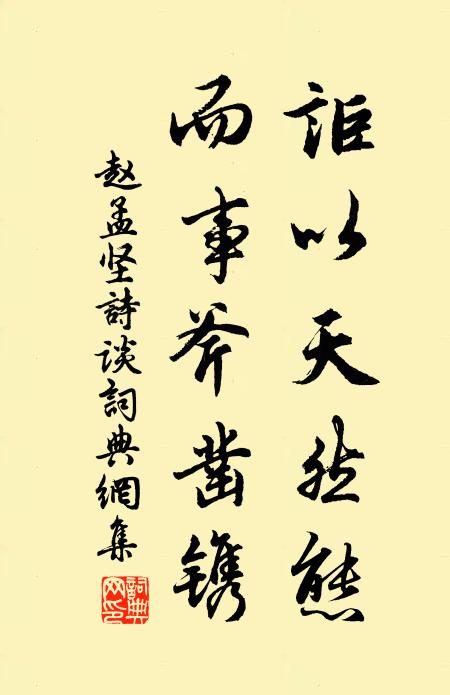 詎以天然態
而事斧凿镌
赵孟坚詩谈詞典網集
詞典网印